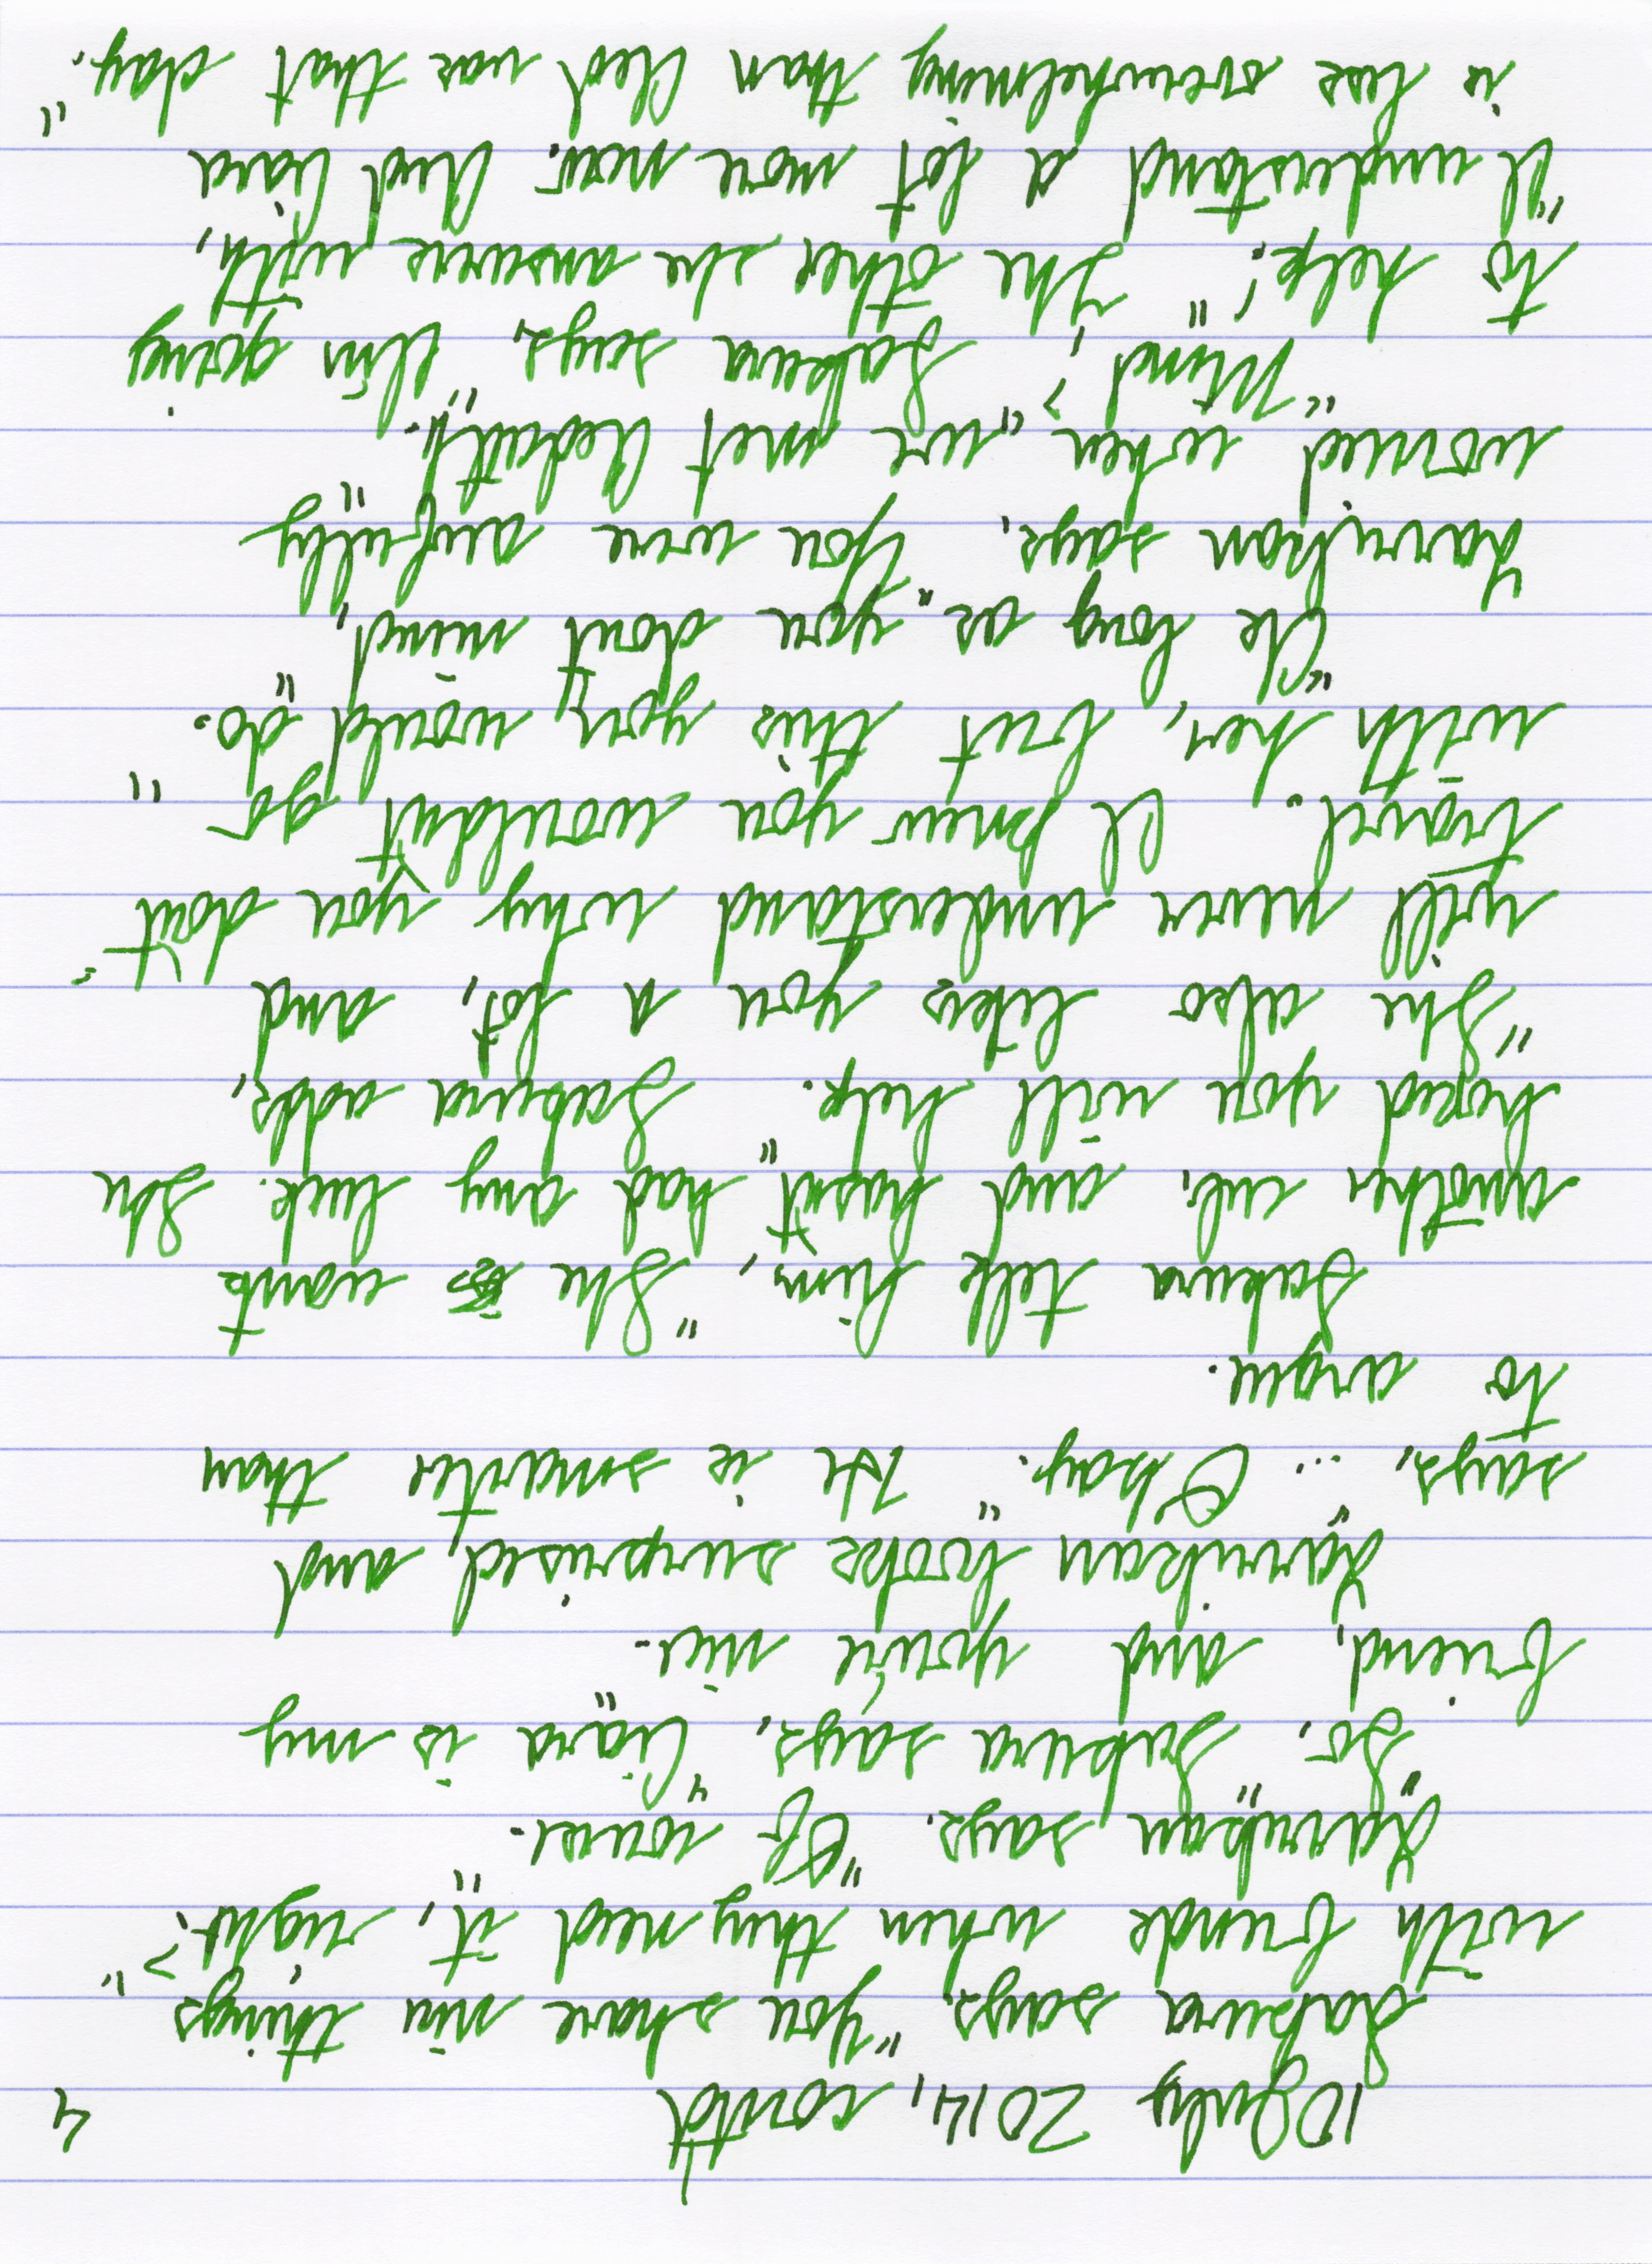 10 July 2014, contd 4
Sakura says, "You share nice things
with friends when they need it, right?"
Zarrukan says, "Of course."
"So," Sakura says, "Ciara is my
friend, and you're nice."
Zarrukan looks surprised, and
says, "... Okay." He is smarter than
to argue.
Sakura tells him, "She wants
another cub, and hasn't had any luck. She
hoped you will help." Sakura adds,
"She also likes you a lot, and
will never understand why you don't
travel. I knew you wouldn't go
with her, but this you would do."
"As long as you don't mind,"
Zarrukan says. "You were awfully
worried when we met Aedath."
"Mind?" Sakura says, "I'm going
to help!" The other she answers with,
"I understand a lot more now. And Ciara
is less overwhelming than Aed was that day."